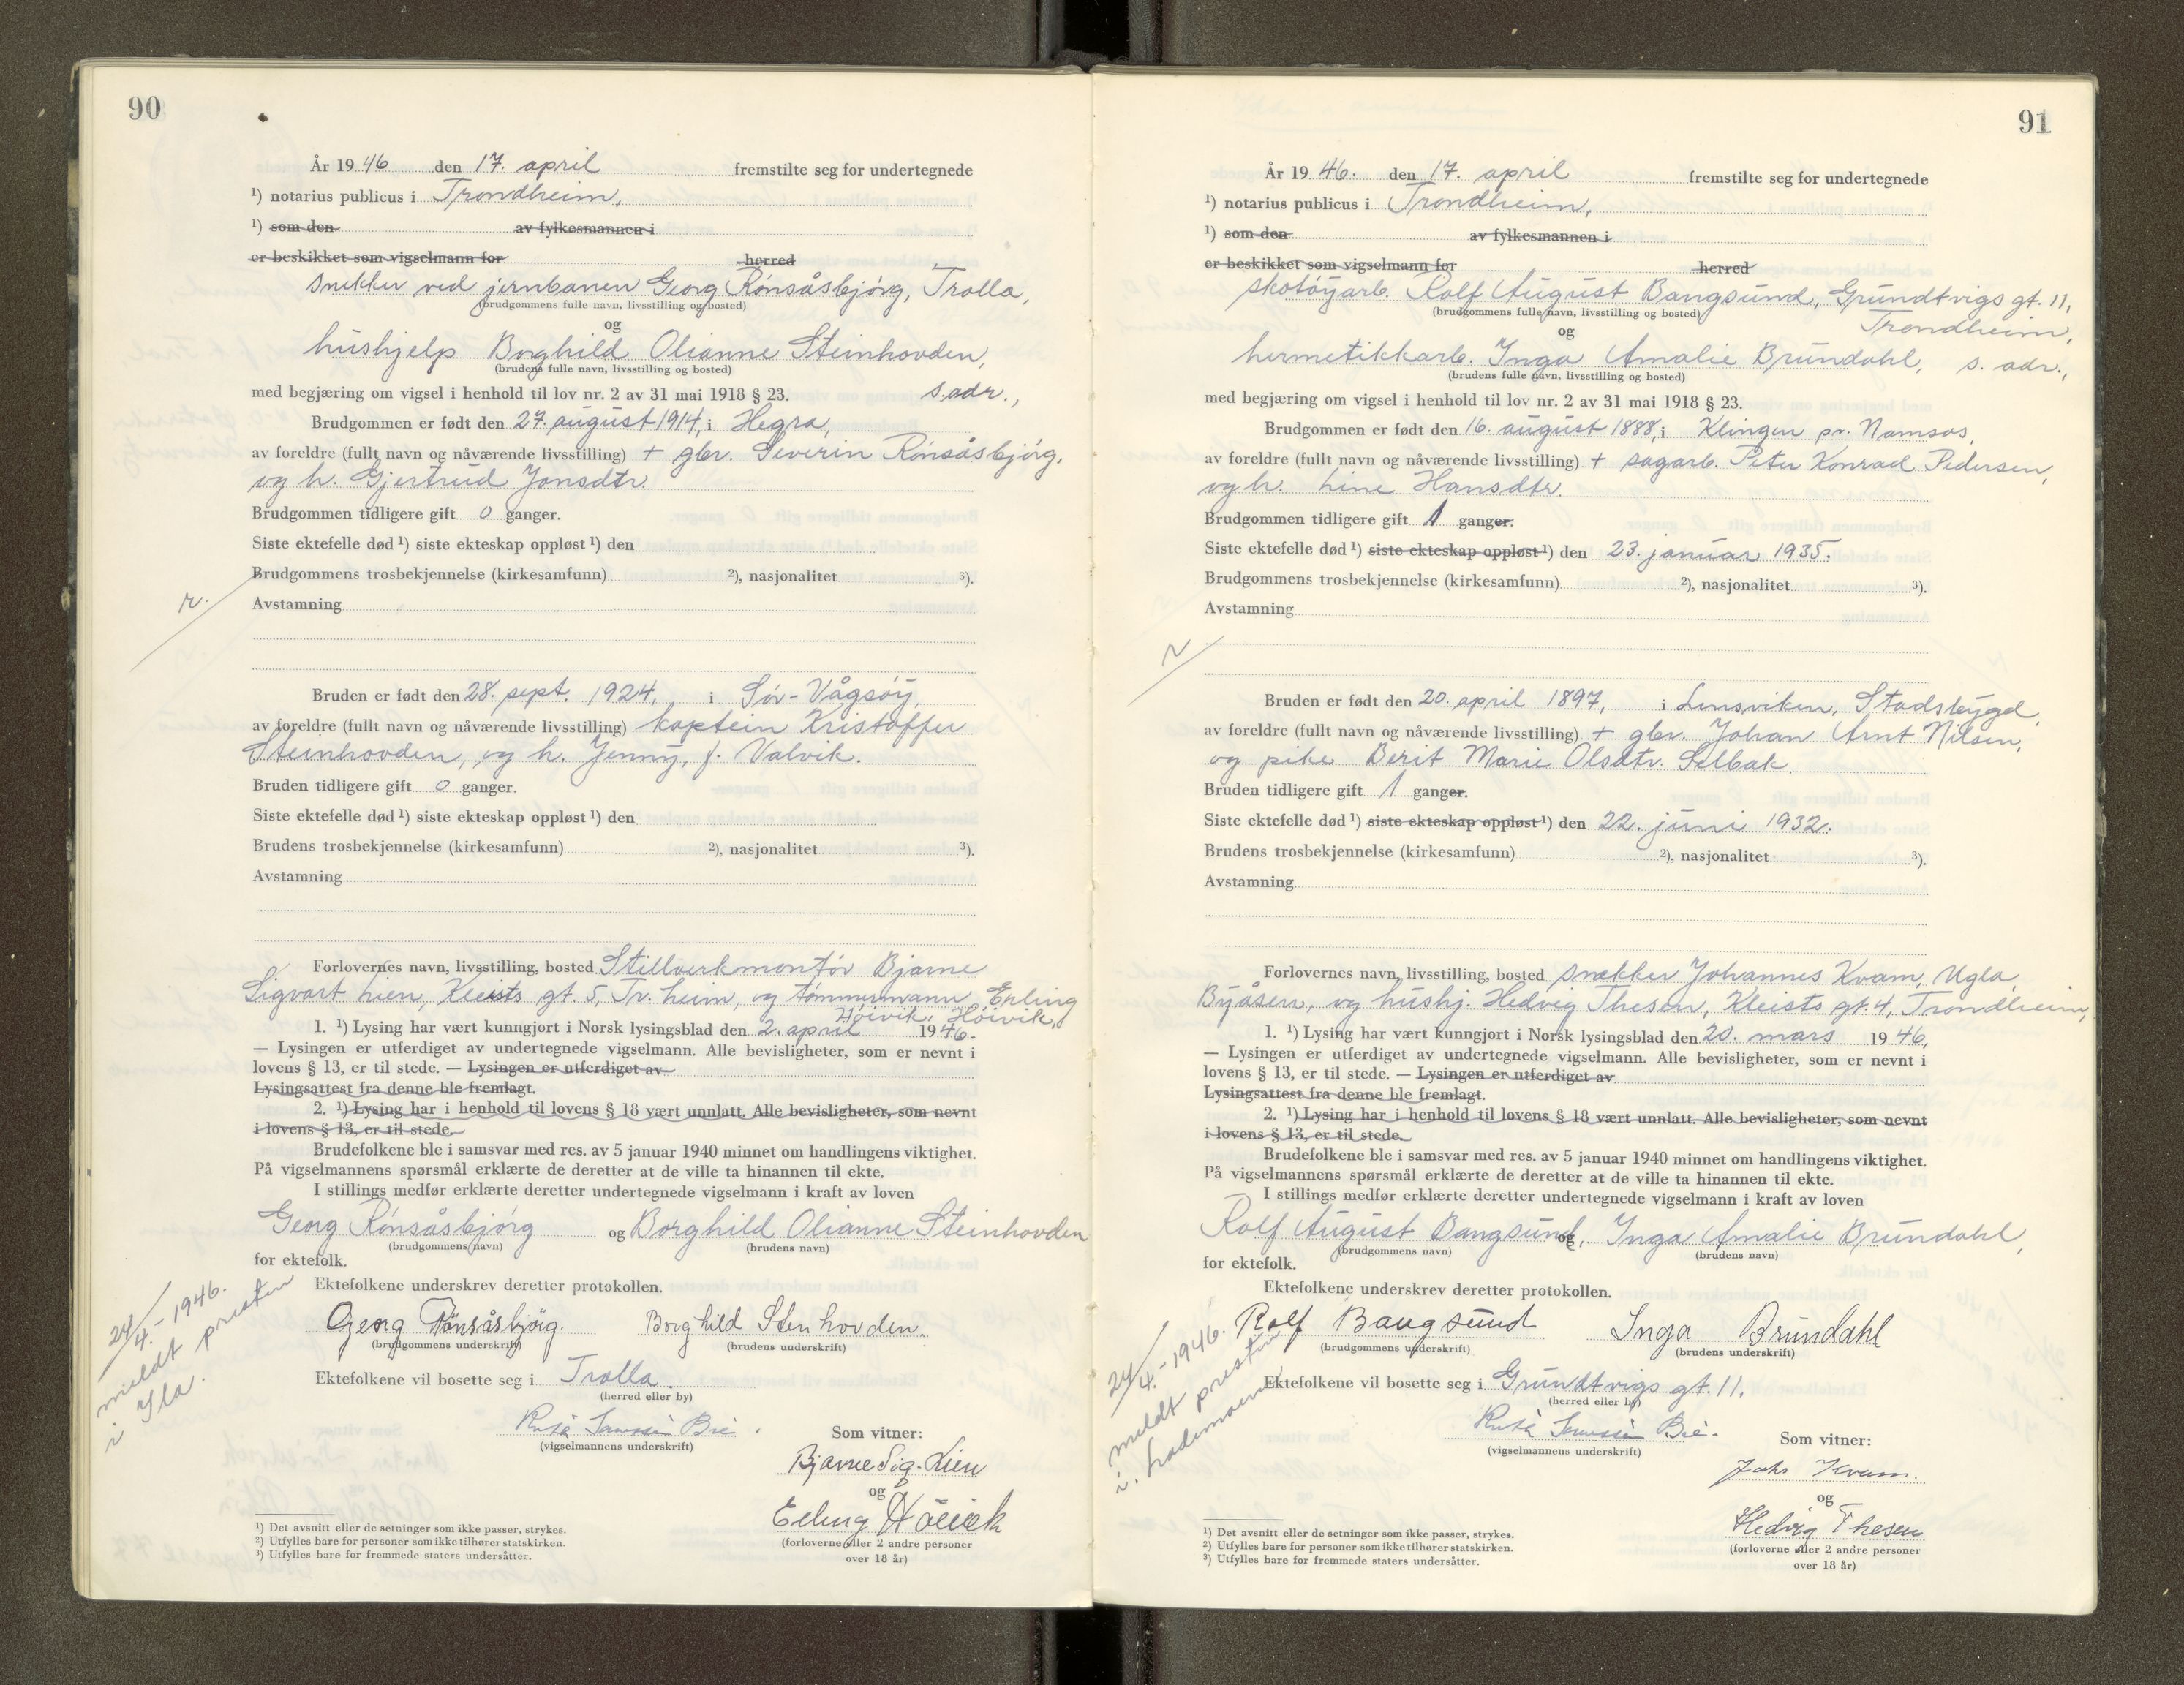 90
År 1946 den 17. april fremstilte seg for undertegnede
¹) notarius publicus i Trondheim,
¹) som den av fylkesmannen i
er beskikket som vigselmann for herred
snekker ved jernbanen Georg Rönsåsbjörg, Trolla,
(brudgommens fulle navn, livsstilling og bosted)
og
hushjelp Borghild Olianne Steinhovden,
(brudens fulle navn, livsstilling og bosted)
s. adr.,
med begjæring om vigsel i henhold til lov nr. 2 av 31 mai 1918 § 23.
Brudgommen er født den 27. august 1914, i Hegra,
av foreldre (fullt navn og nåværende livsstilling) + gbr. Severin Rönsåsbjörg,
og h. Gjertrud Jonsdtr.
Brudgommen tidligere gift 0 ganger.
Siste ektefelle død ¹) siste ekteskap oppløst ¹) den
Brudgommens trosbekjennelse (kirkesamfunn) ²), nasjonalitet ³).
r.
Avstamning
Bruden er født den 28. sept. 1924, i Sör-Vågsöy,
av foreldre (fullt navn og nåværende livsstilling) kaptein Kristoffer
Steinhovden, og h. Jenny, f. Valvik.
Bruden tidligere gift 0 ganger.
Siste ektefelle død ¹) siste ekteskap oppløst ¹) den
Brudens trosbekjennelse (kirkesamfunn) ²), nasjonalitet ³).
Avstamning
Forlovernes navn, livsstilling, bosted Stillverkmontör Bjarne
Sigvart Lien, Kleists gt. 5, Tr.heim, og tömmermann Erling
Höivik, Höivik,
1. ¹) Lysing har vært kunngjort i Norsk lysingsblad den 2. april 1946.
— Lysingen er utferdiget av undertegnede vigselmann. Alle bevisligheter, som er nevnt i
lovens § 13, er til stede. — Lysingen er utferdiget av
Lysingsattest fra denne ble fremlagt.
2. ¹) Lysing har i henhold til lovens § 18 vært unnlatt. Alle bevisligheter, som nevnt
i lovens § 13, er til stede.
Brudefolkene ble i samsvar med res. av 5 januar 1940 minnet om handlingens viktighet.
På vigselmannens spørsmål erklærte de deretter at de ville ta hinannen til ekte.
I stillings medfør erklærte deretter undertegnede vigselmann i kraft av loven
Georg Rönsåsbjörg og Borghild Olianne Steinhovden
(brudgommens navn) (brudens navn)
for ektefolk.
Ektefolkene underskrev deretter protokollen.
24/4.-1946.
meldt presten
i Ila.
Georg Rönsåsbjörg. Borghild Stenhovden.
(brudgommens underskrift) (brudens underskrift)
Ektefolkene vil bosette seg i Trolla.
(herred eller by)
(vigselmannens underskrift)
Som vitner:
Bjarne Sig. Lien
og
Erling Höivik
(forloverne eller 2 andre personer
over 18 år)
¹) Det avsnitt eller de setninger som ikke passer, strykes.
²) Utfylles bare for personer som ikke tilhører statskirken.
³) Utfylles bare for fremmede staters undersåtter.
91
År 1946. den 17. april fremstilte seg for undertegnede
¹) notarius publicus i Trondheim,
¹) som den av fylkesmannen i
er beskikket som vigselmann for herred
skotöyarb. Rolf August Bangsund, Grundtvigs gt. 11,
(brudgommens fulle navn, livsstilling og bosted)
Trondheim,
og
hermetikkarb. Inga Amalie Brundahl, s. adr.,
(brudens fulle navn, livsstilling og bosted)
med begjæring om vigsel i henhold til lov nr. 2 av 31 mai 1918 § 23.
Brudgommen er født den 16. august 1888, i Klingen pr. Namsos,
av foreldre (fullt navn og nåværende livsstilling) + sagarb. Peter Konrad Pedersen,
og h. Line Hansdtr.
Brudgommen tidligere gift 1 ganger.
Siste ektefelle død ¹) siste ekteskap oppløst ¹) den 23. januar 1935.
Brudgommens trosbekjennelse (kirkesamfunn) ²), nasjonalitet ³).
Avstamning
r
Bruden er født den 20. april 1897, i Lensviken, Stadsbygd,
av foreldre (fullt navn og nåværende livsstilling) + gbr. Johan Arnt Nilsen,
og pike Berit Marie Olsdtr. Selbak.
Bruden tidligere gift 1 ganger.
Siste ektefelle død ¹) siste ekteskap oppløst ¹) den 22. juni 1932.
Brudens trosbekjennelse (kirkesamfunn) ²), nasjonalitet ³).
Avstamning
Forlovernes navn, livsstilling, bosted snekker Johannes Kvam, Ugla,
Byåsen, og hushj. Hedvig Thesen, Kleists gt. 4, Trondheim,
1. ¹) Lysing har vært kunngjort i Norsk lysingsblad den 20. mars 1946,
— Lysingen er utferdiget av undertegnede vigselmann. Alle bevisligheter, som er nevnt i
lovens § 13, er til stede. — Lysingen er utferdiget av
Lysingsattest fra denne ble fremlagt.
2. ¹) Lysing har i henhold til lovens § 18 vært unnlatt. Alle bevisligheter, som nevnt
i lovens § 13, er til stede.
Brudefolkene ble i samsvar med res. av 5 januar 1940 minnet om handlingens viktighet.
På vigselmannens spørsmål erklærte de deretter at de ville ta hinannen til ekte.
I stillings medfør erklærte deretter undertegnede vigselmann i kraft av loven
Rolf August Bangsund, og Inga Amalie Brundahl,
(brudgommens navn) (brudens navn)
for ektefolk.
Ektefolkene underskrev deretter protokollen.
24/4.-1946.
meldt presten
i Lademoen.
Rolf Bangsund Inga Brundahl
(brudgommens underskrift) (brudens underskrift)
Ektefolkene vil bosette seg i Grundtvigs gt. 11.
(herred eller by)
(vigselmannens underskrift)
Som vitner:
Johs Kvam.
og
Hedvig Thesen
(forloverne eller 2 andre personer
over 18 år)
¹) Det avsnitt eller de setninger som ikke passer, strykes.
²) Utfylles bare for personer som ikke tilhører statskirken.
³) Utfylles bare for fremmede staters undersåtter.